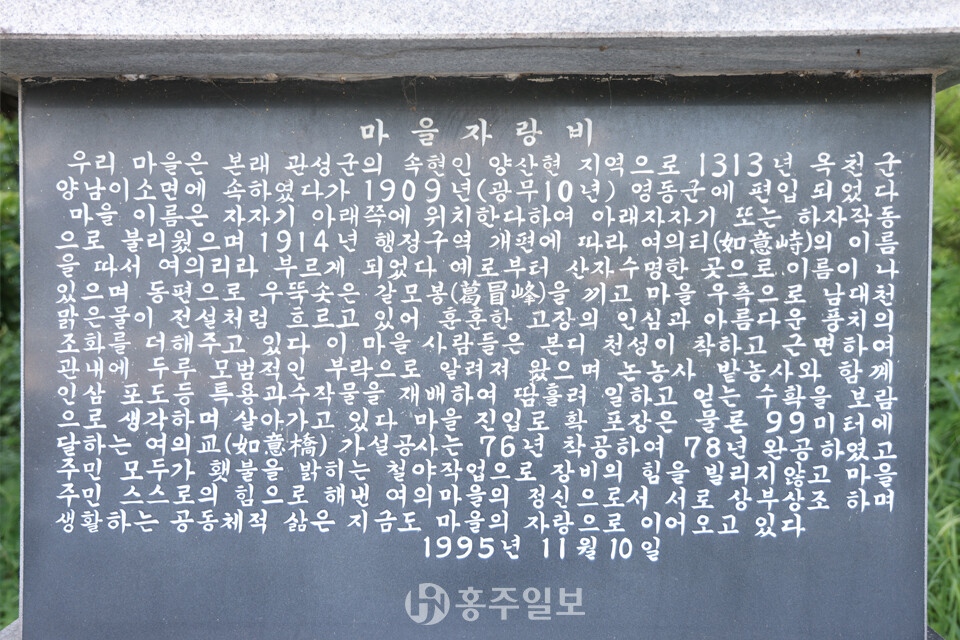 마을자랑비
우리 마을은 본래 관성군의 속현인 양산현 지역으로 1313년 옥천군
양남이소면에 속하였다가 1909년(광무10년) 영동군에 편입 되었다
마을 이름은 자자기 아래쪽에 위치한다하여 아래자자기 또는 하자작동
으로 불리웠으며 1914년 행정구역 개편에 따라 여의티(如意峙)의 이름
을 따서 여의리라 부르게 되었다 예로부터 산자수명한 곳으로 이름이 나
있으며 동편으로 우뚝솟은 갈모봉(葛冒峰)을 끼고 마을 우측으로 남대천
맑은물이 전설처럼 흐르고 있어 훈훈한 고장의 인심과 아름다운 풍치의
조화를 더해주고 있다 이 마을 사람들은 본디 천성이 착하고 근면하여
관내에 두루 모범적인 부락으로 알려져 왔으며 논농사 밭농사와 함께
인삼 포도등 특용과수작물을 재배하여 땀흘려 일하고 얻는 수확을 보람
으로 생각하며 살아가고 있다 마을 진입로 확 포장은 물론 99미터에
달하는 여의교(如意橋) 가설공사는 76년 착공하여 78년 완공하였고
주민 모두가 횃불을 밝히는 철야작업으로 장비의 힘을 빌리지않고 마을
주민 스스로의 힘으로 해낸 여의마을의 정신으로서 서로 상부상조 하며
생활하는 공동체적 삶은 지금도 마을의 자랑으로 이어오고 있다
1995년 11월 10일
홍주일보